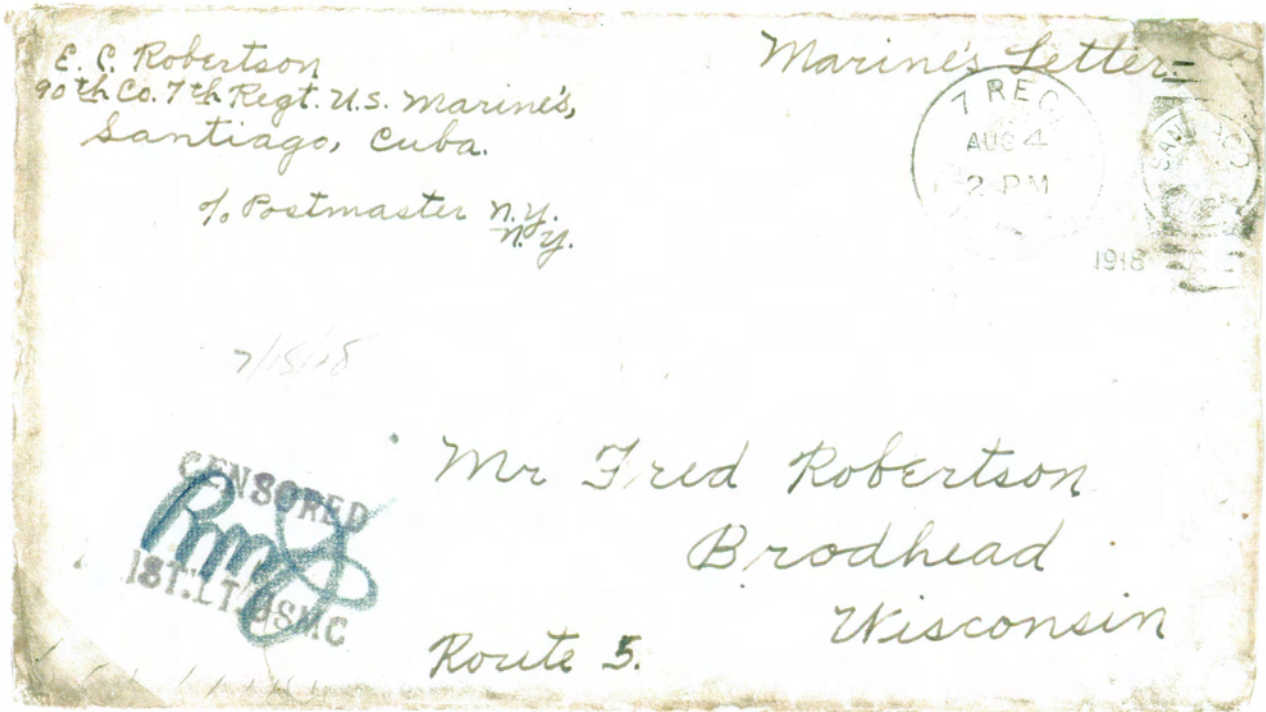 E. C. Robertson
90th Co. 7th Regt. U.S. Marine's,
Santiago, Cuba.
c/o Postmaster N.Y.
N.Y.
Marine's Letter.
7 REG
AUG 4
2 PM
1918
7/15/18
CENSORED
1ST. LT. USMC
Mr Fred Robertson
Brodhead
Wisconsin
Route 5.